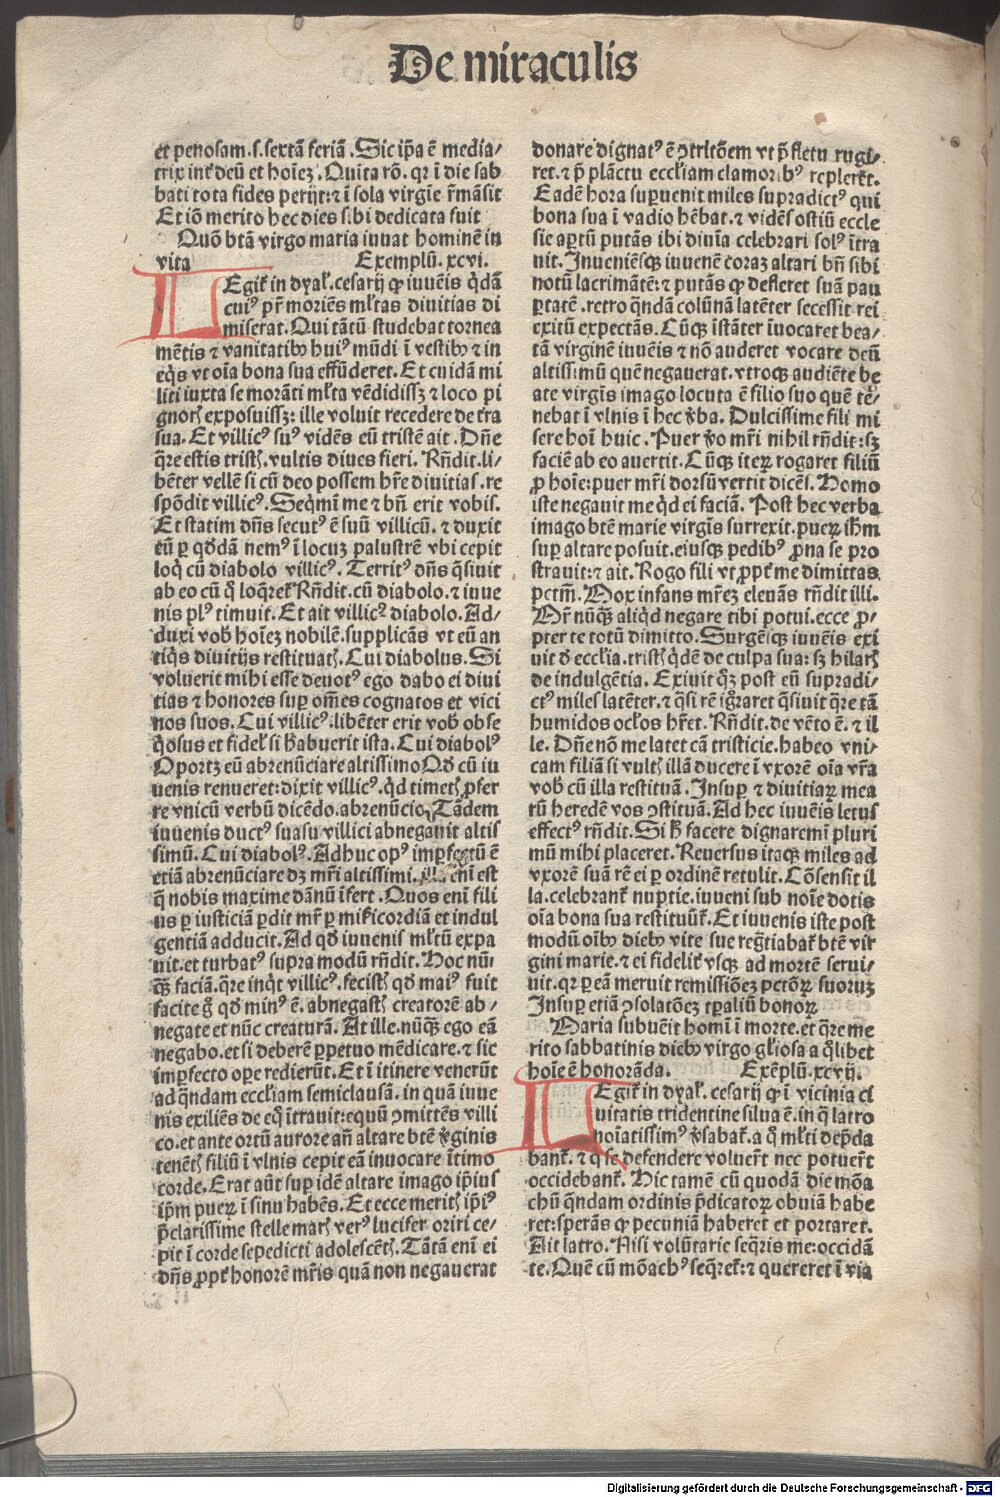 De miraculis
et penosam .s. sextā feriā. Sic ip̄a ē media/
trix int̄ deū et hoīez. Quīta rō. qr ī die sab
bati tota fides perijt: ⁊ ī sola virgīe r̄māsit
Et iō merito hec dies sibi dedicata fuit
Quō btā virgo maria iuuat hominē in
vita Exemplū. xcvi.
Egit̄ in dyal̄. cesarij ꝙ iuuēis q̇dā
cuiꝰ pr̄ moriēs ml̄tas diuitias di
miserat. Qui tātū studebat tornea
mētis ⁊ vanitatibꝰ huiꝰ mūdi ī vestibꝰ ⁊ in
eq̇s vt oīa bona sua effūderet. Et cuidā mi
liti iuxta se morāti ml̄ta vēdidissꝫ ⁊ loco pi
gnor̄ exposuissꝫ: ille voluit recedere de t̄ra
sua. Et villicꝰ suꝰ vidēs eū tristē ait. Dn̄e
q̄re estis trist̄. vultis diues fieri. Rn̄dit. li/
bēter vellē si cū deo possem hr̄e diuitias. re
spōdit villicꝰ. Seq̇mī me ⁊ bn̄ erit vobis.
Et statim dn̄s secutꝰ ē suū villicū. ⁊ duxit
eū ꝑ qd̄dā nemꝰ ī locuꝫ palustrē vbi cepit
loq̇ cū diabolo villicꝰ. Territꝰ dn̄s q̄siuit
ab eo cū q̇ loq̄ret̄ Rn̄dit. cū diabolo. ⁊ iuue
nis plꝰ timuit. Et ait villicꝰ diabolo. Ad/
duxi vob̄ hoīez nobilē. supplicās vt eū an
tiq̇s diuitijs restituat̄. Cui diabolus. Si
voluerit mihi esse deuotꝰ ego dabo ei diui
tias ⁊ honores suꝑ om̄es cognatos et vici
nos suos. Cui villicꝰ. libēter erit vob̄ obse
q̇osus et fidel̄ si h̄abuerit ista. Cui diabolꝰ
Oportꝫ eū abrenūciare altissimo Qd̄ cū iu
uenis renueret: dixit villicꝰ. q̇d timet̄ ꝓfer
re vnicū verbū dicēdo. abrenūcio. Tādem
iuuenis ductꝰ suasu villici abnegauit altis
simū. Cui diabolꝰ. Adhuc opꝰ imꝑfectū ē
etiā abrenūciare dꝫ mr̄i altissimi. enī est
q̄ nobis maxime dānū īfert. Quos enī fili
us ꝑ iusticiā ꝑdit mr̄ ꝑ mīscd̄iam et indul
gentiā adducit. Ad qd̄ iuuenis ml̄tū expa
uit. et turbatꝰ supra modū rn̄dit. Hoc nū/
q̄ꝫ faciā. q̄re inq̇t villicꝰ. fecist̄ qd̄ maiꝰ fuit
facite g̊ qd̄ minꝰ ē. abnegast̄ creatorē ab/
negate et nūc creaturā. At ille. nūq̄ꝫ ego eā
negabo. et si deberē ꝑpetuo mēdicare. ⁊ sic
imꝑfecto oꝑe redierūt. Et ī itinere venerūt
ad q̄ndam eccl̄iam semiclausā. in quā iuue
nis exiliēs de eq̊ ītrauit: equū ꝯmittēs villi
co. et ante ortū aurore an̄ altare bt̄ē v̄ginis
tenēt̄ filiū ī vlnis cepit eā inuocare ītimo
corde. Erat aūt suꝑ idē altare imago ip̄ius
ip̄m pueꝝ ī sinu habēs. Et ecce merit̄ ip̄iꝰ
p̄clarissime stelle mat̄ verꝰ lucifer oriri ce/
pit ī corde sepedicti adolescēt̄. Tātā enī ei
dn̄s ꝓpt̄ honorē mr̄is quā non negauerat
donare dignatꝰ ē ꝯtritōem vt p̄ fletu rugi/
ret. ⁊ p̄ plāctu eccl̄iam clamoribꝰ repleret̄.
Eadē hora suꝑuenit miles supradictꝰ qui
bona sua ī vadio hēbat. ⁊ vidēs ostiū eccle
sie aꝑtū putās ibi diuīa celebrari solꝰ ītra
uit. Inueniēsqꝫ iuuenē coraꝫ altari bn̄ sibi
notū lacrimātē: ⁊ putās ꝙ defleret suā pau
ꝑtatē. retro q̄ndā colūnā latēter secessit rei
exitū expectās. Cūqꝫ īstāter īuocaret bea/
tā virginē iuuēis ⁊ nō auderet vocare deū
altissimū quē negauerat. vtroqꝫ audiēte be
ate virgīs imago locuta ē filio suo quē te/
nebat ī vlnis ī hec v̄ba. Dulcissime fili mi
sere hoī huic. Puer v̊o mr̄i nihil rn̄dit: sꝫ
faciē ab eo auertit. Cūqꝫ iteꝝ rogaret filiū
ꝓ hoīe: puer mr̄i dorsū vertit dicēs. Homo
iste negauit me q̇d ei faciā. Post hec verba
imago btē marie virgīs surrexit. pueꝝ ih̄m
suꝑ altare posuit. eiusqꝫ pedibꝰ ꝓna se pro
strauit: ⁊ ait. Rogo fili vt ꝓpt̄ me dimittas
pctm̄. Mox infans mr̄ez eleuās rn̄dit illi.
Mr̄ nūq̄ꝫ aliq̇d negare tibi potui. ecce ꝓ/
pter te totū dimitto. Surgēsqꝫ iuuēis exi
uit d̄ eccl̄ia. trist̄ q̇dē de culpa sua: sꝫ hilar̄
de indulgētia. Exiuit qꝫ post eū supradi/
ctꝰ miles latēter. ⁊ q̄si rē ignoraret q̄siuit q̄re tā
humidos ocl̄os hr̄et. Rn̄dit. de vēto ē. ⁊ il
le. Dn̄e nō me latet cā tristicie. habeo vni/
cam filiā si vult̄ illā ducere ī vxorē oīa vr̄a
vob̄ cū illa restituā. Insuꝑ ⁊ diuitiaꝝ mea
rū heredē vos ꝯstituā. Ad hec iuuēis letus
effectꝰ rn̄dit. Si h̄ facere dignaremī pluri
mū mihi placeret. Reuersus itaqꝫ miles ad
vxorē suā rē ei ꝑ ordinē retulit. Cōsensit il
la. celebrant̄ nuptie. iuueni sub noīe dotis
oīa bona sua restituūt̄. Et iuuenis iste post
modū oībꝰ diebꝰ vite sue regrātiabat̄ btē vir
gini marie. ⁊ ei fidelit̄ vsqꝫ ad mortē serui/
uit. qr ꝑ eā meruit remissiōez pctōꝝ suoruꝫ
Insuꝑ etiā ꝯsolatōez tꝑaliū bonoꝝ
Maria subuēit homī ī morte. et q̄re me
rito sabbatinis diebꝰ virgo gl̄iosa a q̇libet
hoīe ē honorāda. Exēplū. xcvij.
Egit̄ in dyal̄. cesarij ꝙ ī vicinia ci
uitatis tridentine silua ē. in q̄ latro
noīatissimꝰ v̄sabat̄. a q̊ ml̄ti dep̄da
bant̄. ⁊ q̇ se defendere voluer̄t nec potuer̄t
occidebant̄. Hic tamē cū quodā die mōa
chū q̄ndam ordinis p̄dicatoꝝ obuiā habe
ret: sperās ꝙ pecuniā haberet et portaret.
Ait latro. Nisi volūtarie seq̄ris me: occidā
te. Quē cū mōachꝰ seq̄ret̄: ⁊ quereret ī via
Digitalisierung gefördert durch die Deutsche Forschungsgemeinschaft - DFG